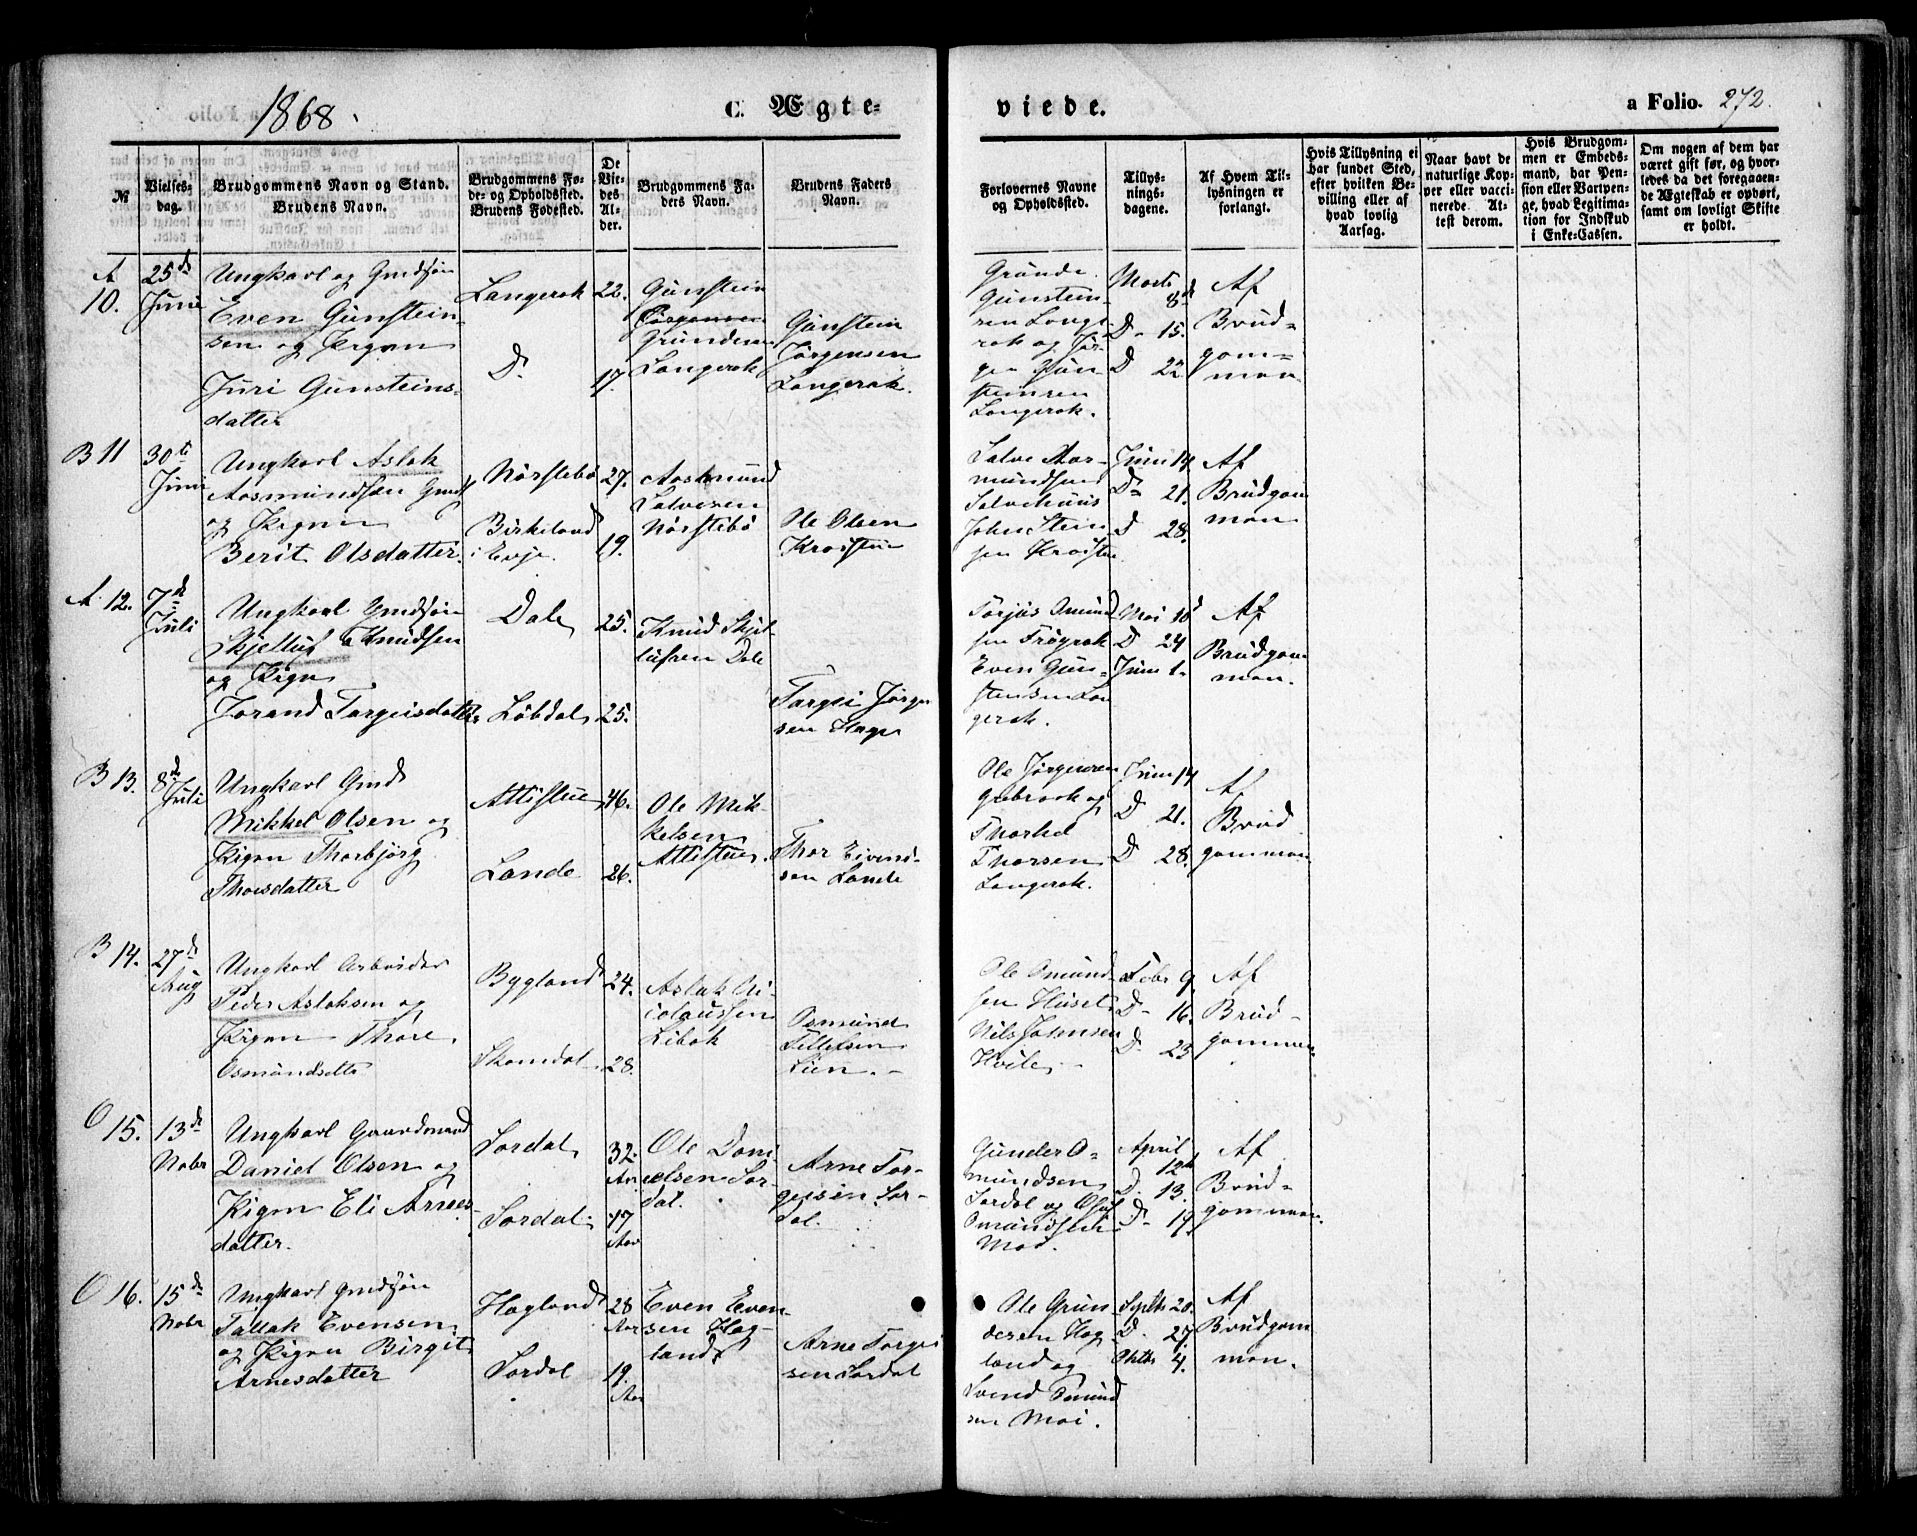 1868.
C. Ægte=
viede.
a Folio. 272.
№
Vielses-
dag.
Brudgommens Navn og Stand.
Brudens Navn.
Brudgommens Fø-
de- og Opholdssted.
Brudens Fødested.
De
Vie-
des
Al-
der.
Brudgommens Fa-
ders Navn.
Brudens Faders
Navn.
Forlovernes Navne
og Opholdssted.
Tillys-
nings-
dagene.
Af Hvem Til-
lysningen er
forlangt.
Hvis Tillysning ei
har fundet Sted,
efter hvilken Be-
villing eller af
hvad lovlig
Aarsag.
Naar havt de
naturlige Kop-
per eller vacci-
nerede. At-
test derom.
Hvis Brudgom-
men er Embeds-
mand, har Pen-
sion eller Vartpen-
ge, hvad Legitima-
tion for Indskud
i Enke-Cassen.
Om nogen af dem har
været gift før, og hvor-
ledes da det foregaaen-
de Ægteskab er ophørt,
samt om lovligt Skifte
er holdt.
A
10.
25de
Juni
Ungkarl og Gmdsøn
Even Gunstein-
sen og Pigen
Juri Gunsteins-
datter
Langerak
D.
22.
17.
Gunstein
Jørgensen
Grundesen
Langerak
Gunstein
Jørgensen
Langerak.
Grunde
Gunstein-
sen Lange
rak og Jør-
gen Gun
steinsen
Langerak.
Marts
8de
D. 15.
D 22
Af
Brud=
gom=
man
B 11
30te
Juni
Ungkarl Aslak
Aasmundsen Gmds
og Pigen
Berit Olsdatter.
Nørstebø
Birkeland
i Evje.
27.
19.
Aasmund
Salvesen
Nørstebø
Ole Olsen
Kraistue
Salve Aas-
mundsen
John Stein
sen
Juni 14
D 21.
D 28.
Af
Brudgom
man
A. 12.
7de
Juli
Ungkarl Gmdsøn
Skjelluf Knudsen
og Pigen
Jorand Targeisdatter
Dale
Løbdal
25.
25.
Knud Skjel-
lufsen Dale
Targei Jørgen
sen Hage
Torjus Omund
sen Frøyrak
Even Gun-
steinsen Lan
gerak.
Mai 10d
D 24
Juni 1.
Af
Brudgom
man.
B 13.
8de
Juli
Ungkarl Gmds
Mikkel Olsen og
Pigen Thorbjørg
Thorsdatter
Attistue
Lande
46.
26.
Ole Mik-
kelsen
Attistue.
Thor Eivend-
sen Lande
Ole Jørgensen
og
Thorkel
Thorsen
Langerak.
Juni 14
D 21.
D 28.
Af
Brud
gomman
B 14.
27de
Aug
Ungkarl Arbeider
Peder Aslaksen og
Pigen Thore
Osmundsdtt
Bygland
Skomdal
24.
28.
Aslak Ni-
colaussen
Libak
Osmund
Tellefsen
Lien.
Ole Omund-
sen Huset
Nils Johnsen
Hvile
Febr 9
D 16.
D. 23
Af
Brud-
gomman
O 15.
13de
Nobr
Ungkarl Gaardmand
Daniel Olsen og
Pigen Eli Arnes-
datter.
Sordal
Sordal.
32.
Aar
47
Aar
Ole Dani
elsen Sor-
dal.
Arne Tar-
geisen Sor-
dal.
Gunder O-
mundsen
Sordal og Olaf
Omundsen
Moi.
April
12te
D. 13.
D. 19.
Af
Brud=
gomman.
O 16.
15de
Nobr
Ungkarl Gmdsøn
Tallak Evensen
og Pigen Birgit
Arnesdatter
Hagland
Sordal
28
Aar
19.
Aar
Even Even-
sen Hag-
land
Arne Targei
sen Sordal
Ole Grun
desen Hag
land og
Svend Omund
sen Moi.
Septbr 20.
D. 27.
Oktbr 4.
Af
Brudgom
man.